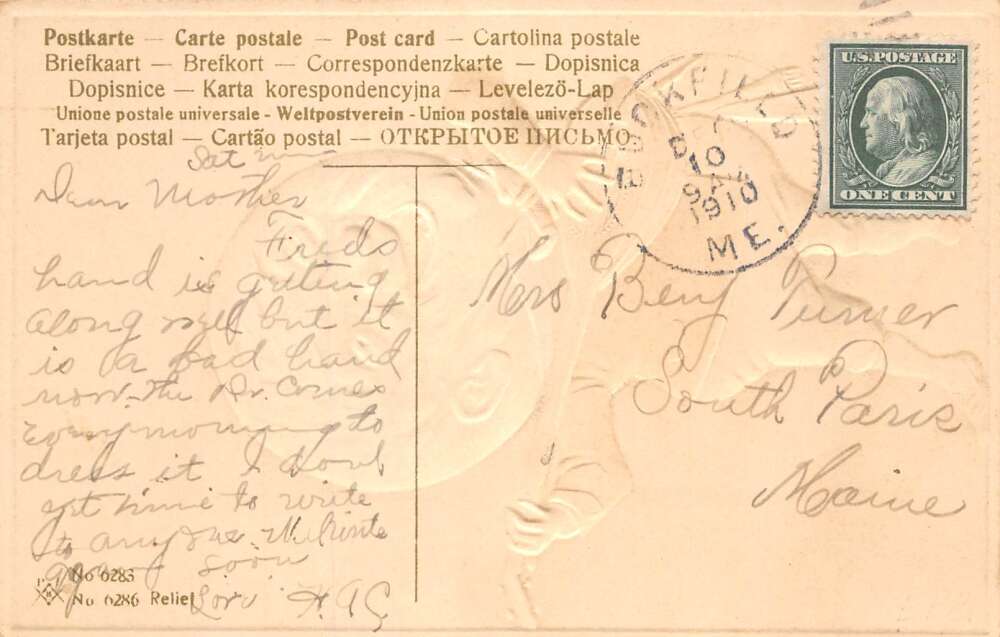 Postkarte — Carte postale — Post card — Cartolina postale
Briefkaart — Brefkort — Correspondenzkarte — Dopisnica
Dopisnice — Karta korespondencyjna — Levelező-Lap
Unione postale universale - Weltpostverein - Union postale universelle
Tarjeta postal — Cartão postal — ОТКРЫТОЕ ПИСЬМО
Sat
Dear Mother
Freds
hand is getting
along well but it
is a bad hand
now. the Dr. Comes
Every morning to
dress it I dont
get time to write
to any one. Will write
again soon
Love H. A. C.
No 6283
No 6286 Relief
BUCKFIELD
10
9 A
1910
ME.
U.S. POSTAGE
ONE CENT
Mrs Benj Turner
South Paris
Maine